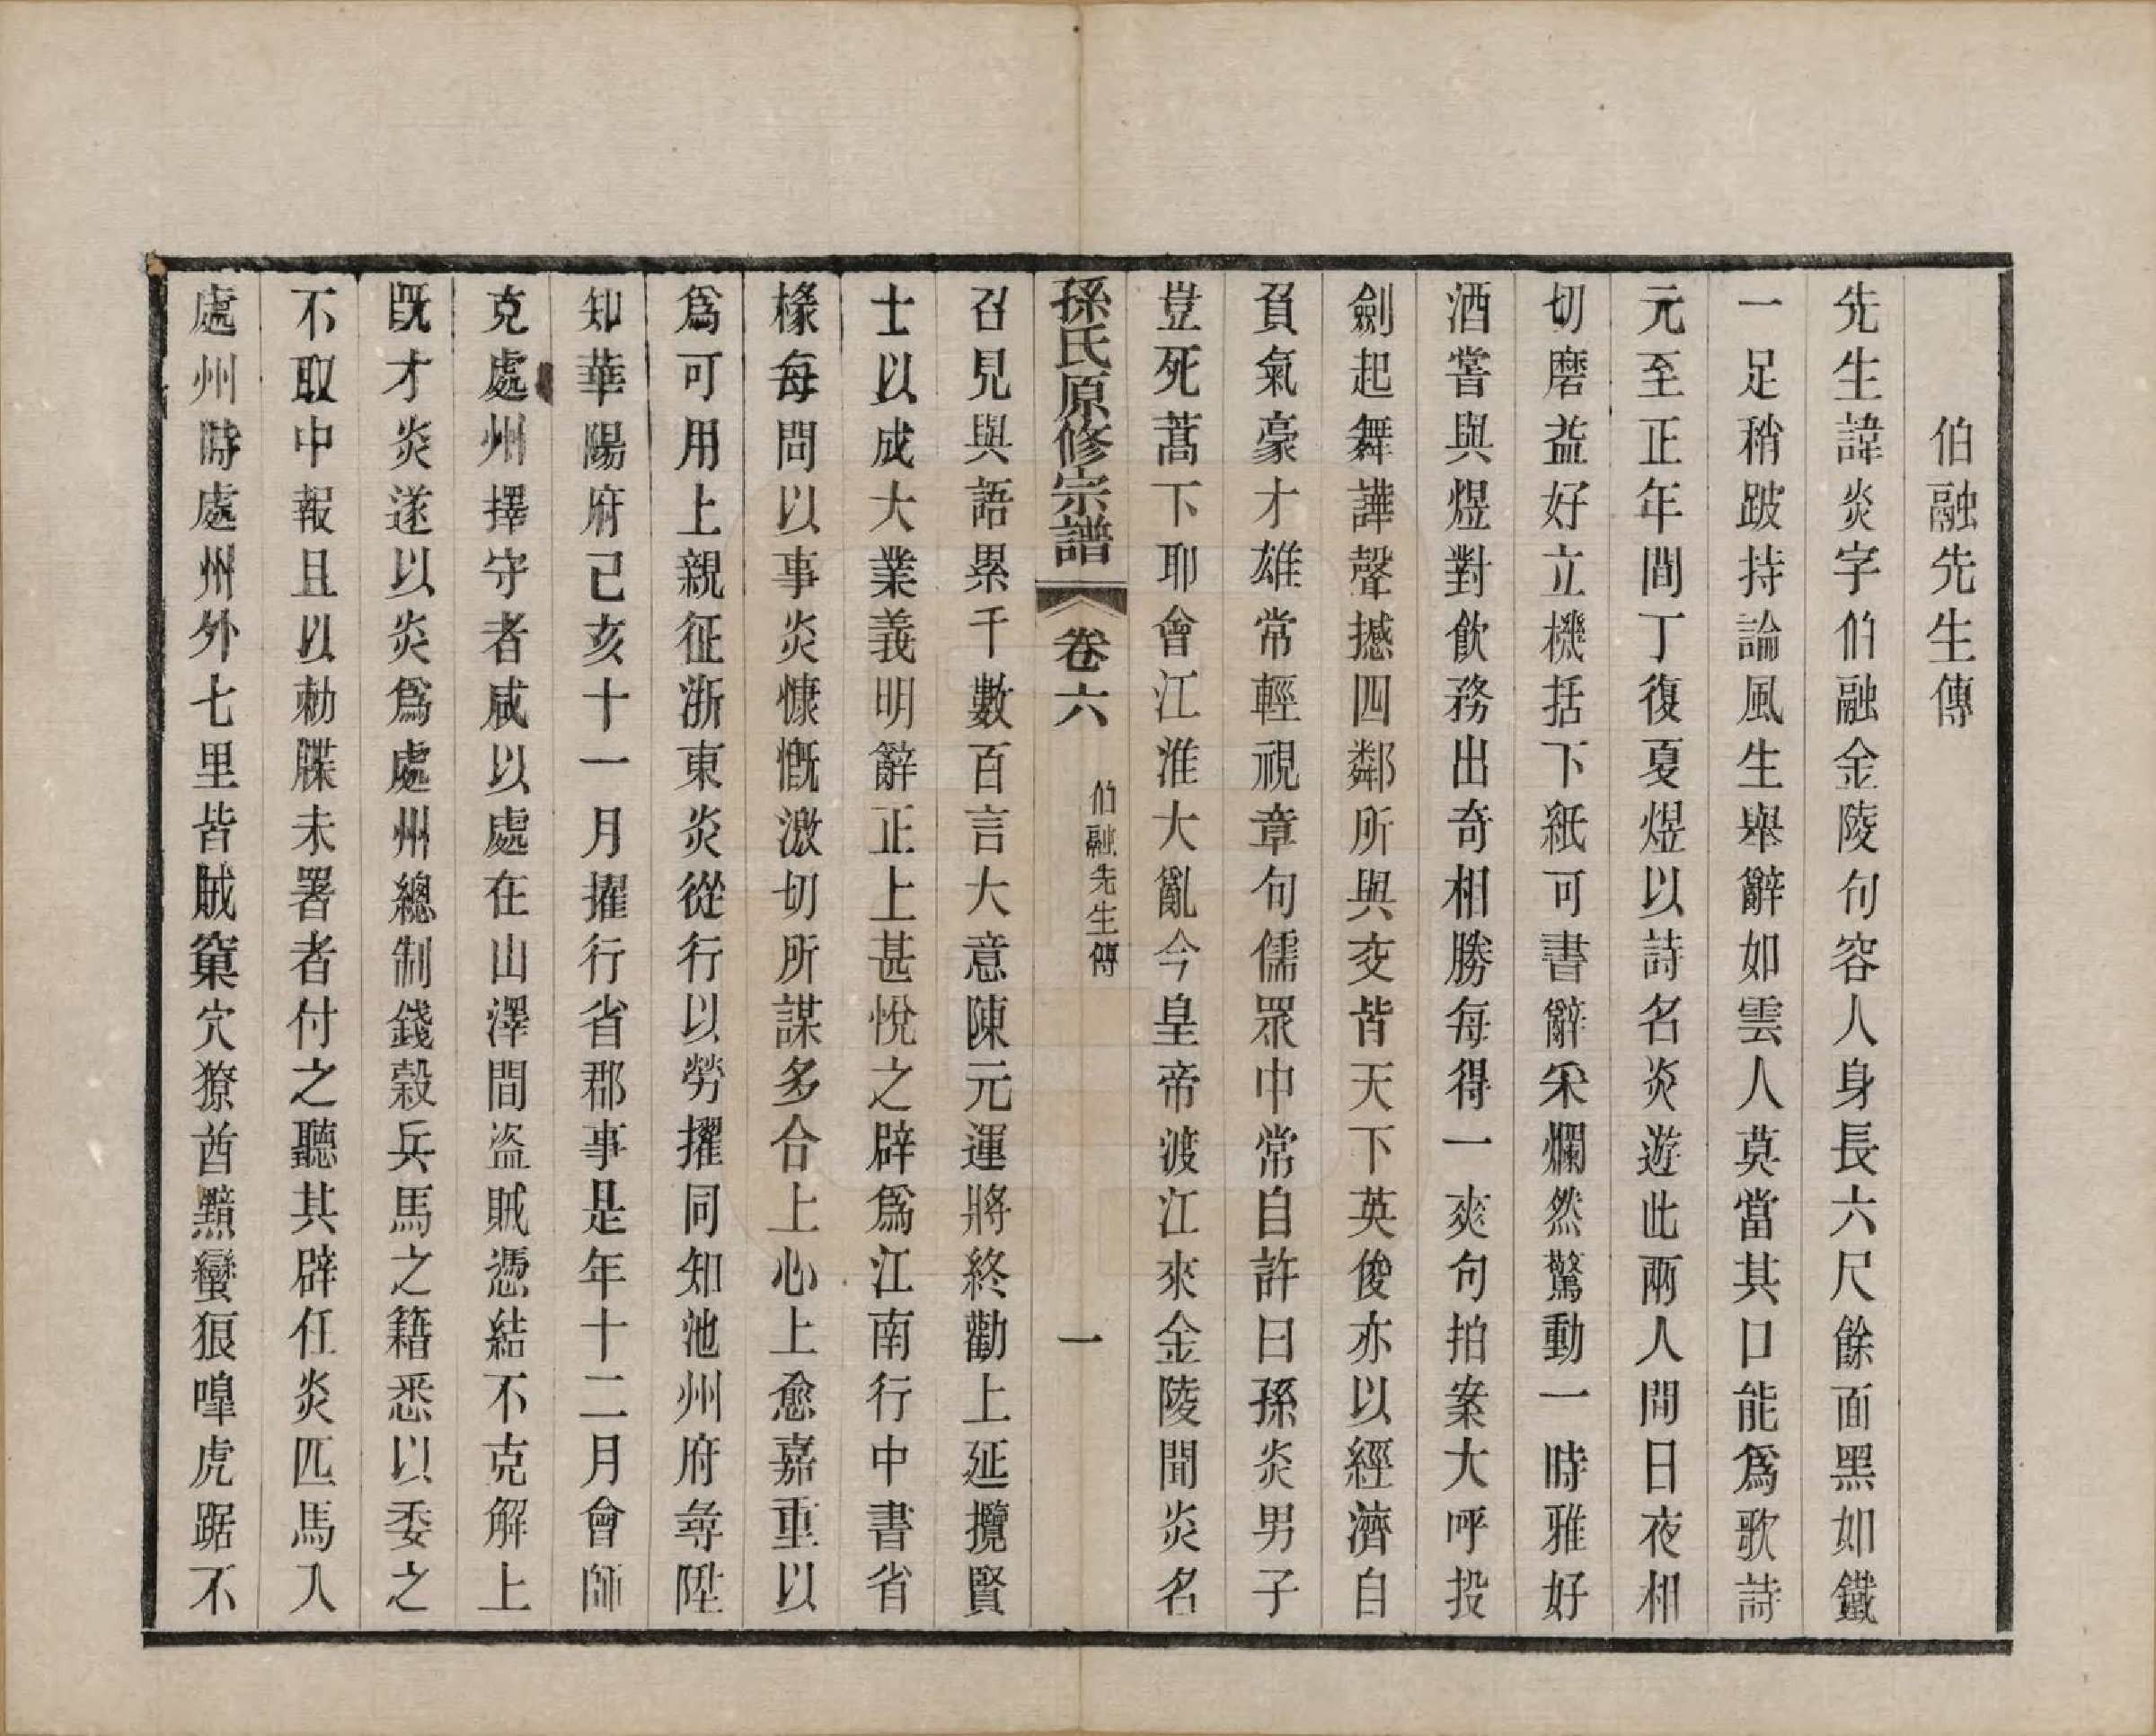 伯融先生傳
先生諱炎字伯融金陵句容人身長六尺餘面黑如鐵
一足稍跛持論風生舉辭如雲人莫當其口能爲歌詩
元至正年間丁復夏煜以詩名炎遊此兩人間日夜相
切磨益好立機括下紙可書辭采爛然驚動一時雅好
酒嘗與煜對飮務出奇相勝每得一爽句拍案大呼投
劍起舞譁聲撼四鄰所與交皆天下英俊亦以經濟自
負氣豪才雄常輕視章句儒眾中常自許曰孫炎男子
豈死蒿下耶會江淮大亂今皇帝渡江來金陵聞炎名
孫氏原修宗譜 卷六 伯融先生傳 一
召見與語累千數百言大意陳元運將終勸上延攬賢
士以成大業義明辭正上甚悅之辟爲江南行中書省
椽每問以事炎慷慨激切所謀多合上心上愈嘉重以
爲可用上親征浙東炎從行以勞擢同知池州府尋陞
知華陽府己亥十一月擢行省郡事是年十二月會師
克處州擇守者咸以處在山澤間盜賊憑結不克解上
旣才炎遂以炎爲處州總制錢穀兵馬之籍悉以委之
不取中報且以勅牒未署者付之聽其辟任炎匹馬入
處州時處州外七里皆賊窠穴獠酋黥蠻狼嘷虎踞不